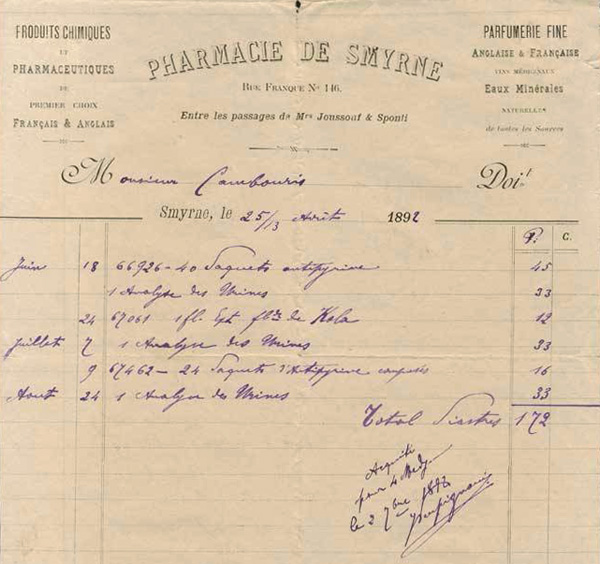 PRODUITS CHIMIQUES
ET
PHARMACEUTIQUES
DE
PREMIER CHOIX
FRANÇAIS & ANGLAIS
PHARMACIE DE SMYRNE
RUE FRANQUE No 146.
Entre les passages de Mrs Joussouf & Sponti
PARFUMERIE FINE
ANGLAISE & FRANÇAISE
VINS MÉDICINAUX
EAUX MINÉRALES
NATURELLES
de toutes les Sources
Monsieur Cambouris Doit
Smyrne, le 25/13 Août 1892
P. C.
Juin 18 66926 - 40 Paquets antipyrine 45
1 Analyse des Urines 33
24 67061 1 fl. Ext. fl. de Kola 12
Juillet 7 1 Analyse des Urines 33
9 67462 - 24 Paquets d'Antipyrine 16
Aout 24 1 Analyse des Urines 33
Total Piastres 172
Acquitté
pour 4 Medj.
le 2 7bre